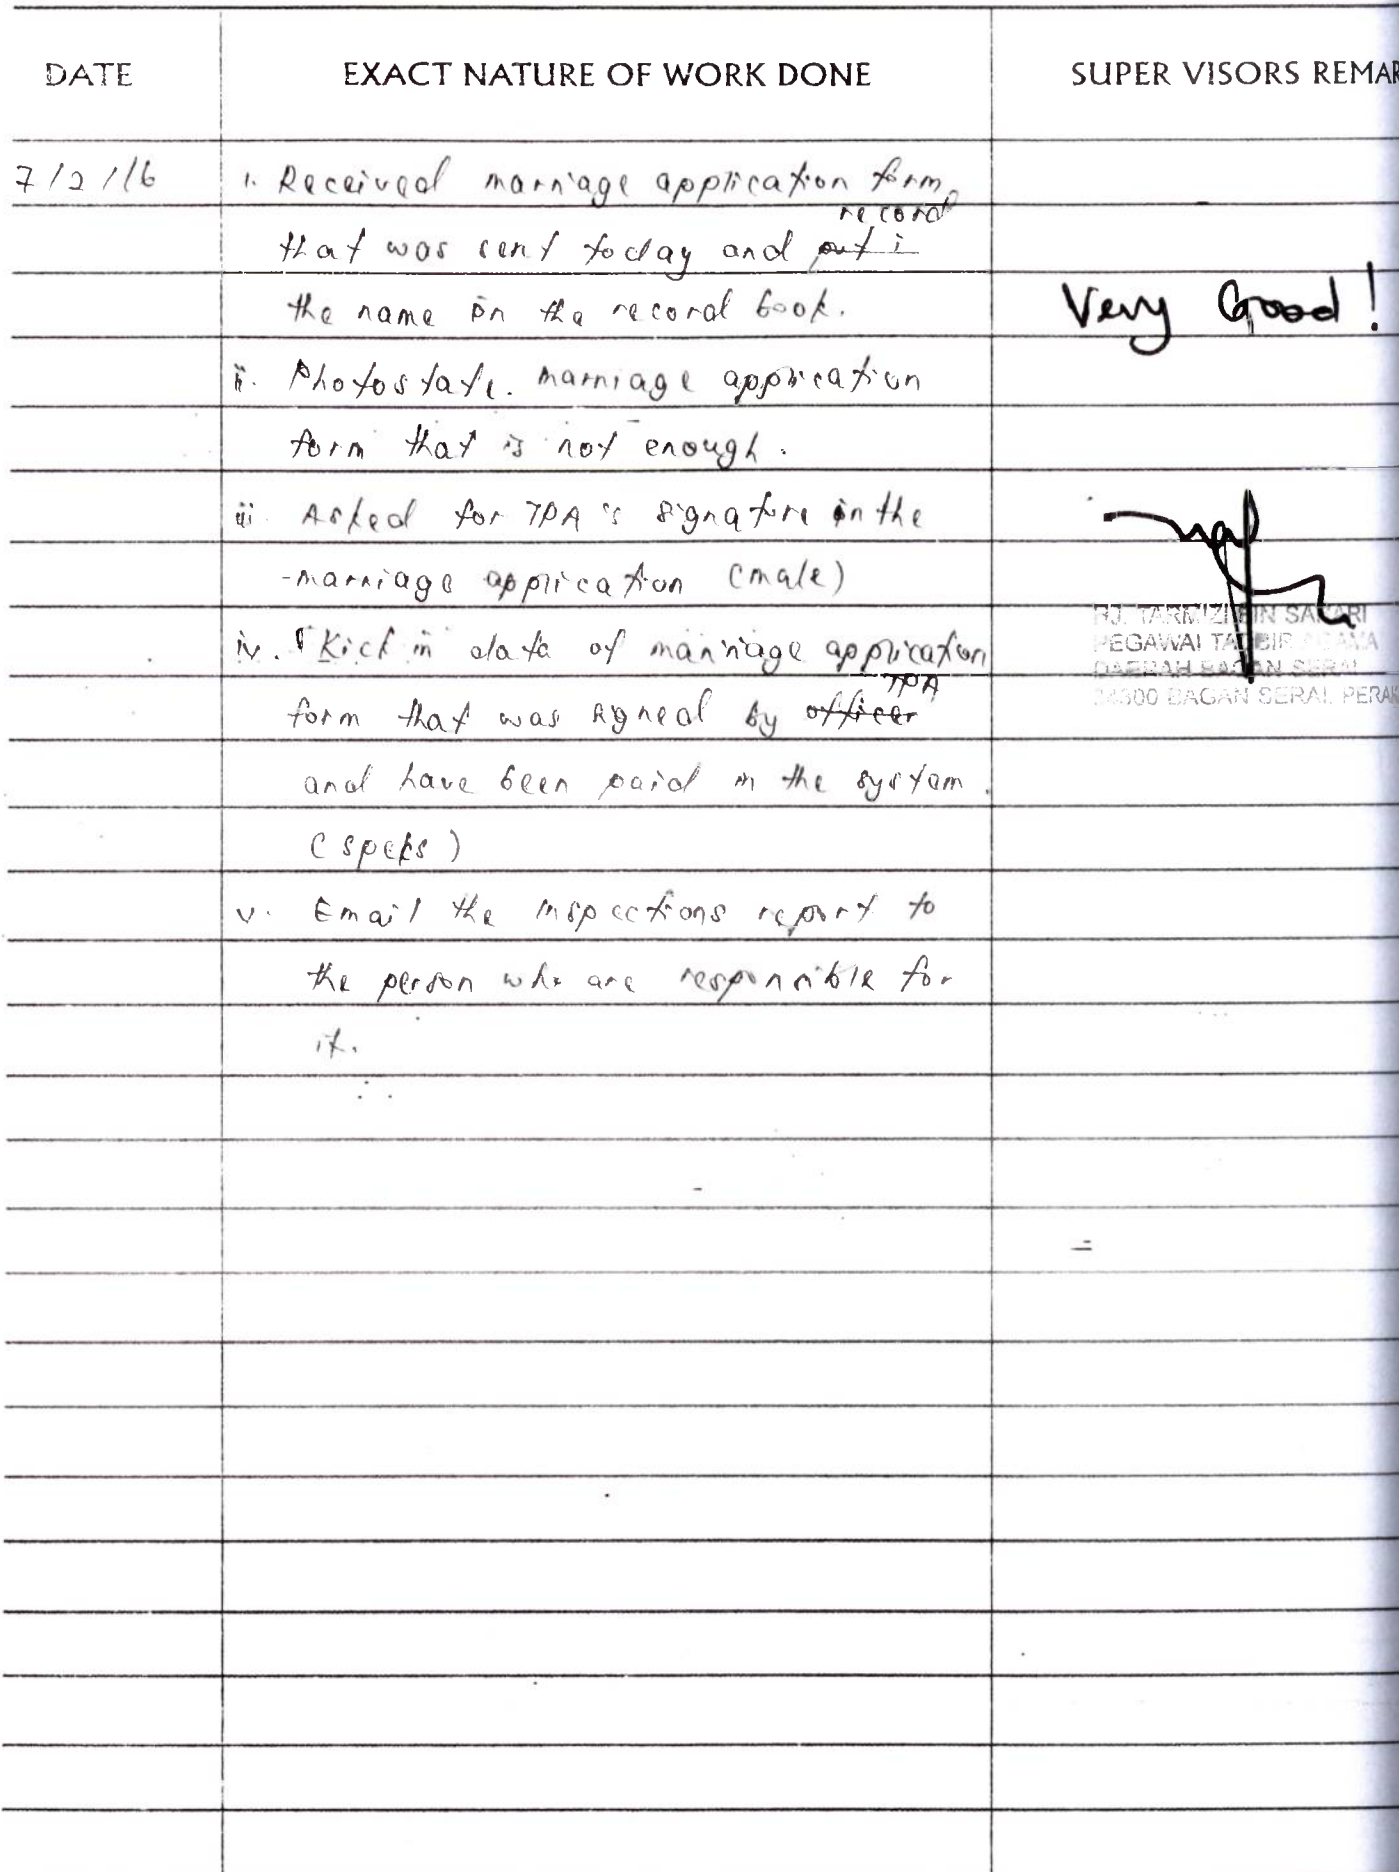 DATE EXACT NATURE OF WORK DONE SUPER VISORS REMAR
7/2/16 i. Received marriage application form
record
that was sent today and put i
the name in the record book.
Very Good!
ii. Photostate. marriage application
form that is not enough.
iii. Asked for TPA's signature in the
marriage application (male)
iv. Kick in data of marriage application
TPA
form that was signed by officer
and have been paid in the system.
(speks)
v. Email the inspections report to
the person who are responsible for
it.
HJ. TARMIZI BIN
PEGAWAI TADBIR AGAMA
DAERAH BAGAN SERAI
34300 BAGAN SERAI, PERAK